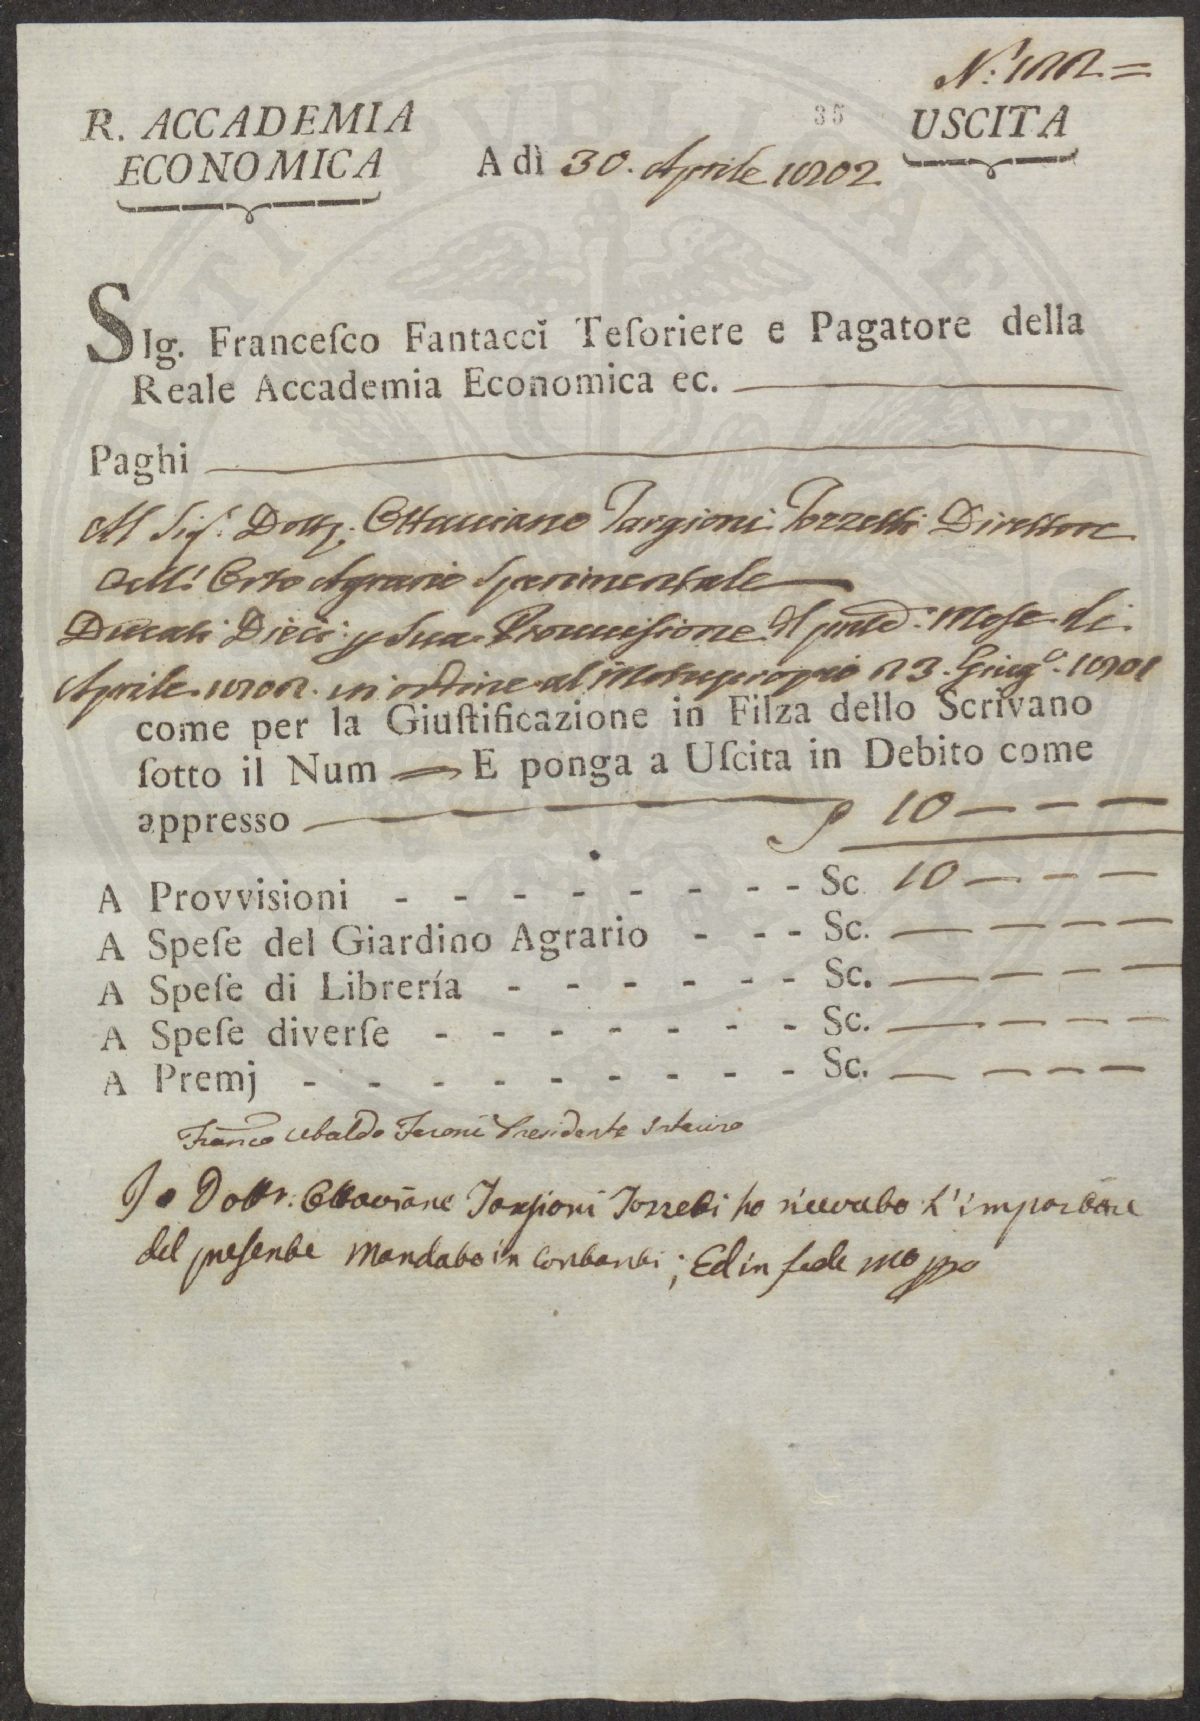 N.° 122 =
R. ACCADEMIA
ECONOMICA
35
USCITA
A dì 30. Aprile 1802
SIg. Franceſco Fantacci Teſoriere e Pagatore della
Reale Accademia Economica ec.
Paghi
Al Sig.r Dott.r Ottaviano Targioni Tozzetti Direttore
dell' Orto Agrario Sperimentale
Ducati Dieci p Sua Provvisione del Mese di
Aprile 1802. in ordine al Motuproprio 23. Giug.o 1801
come per la Giuſtificazione in Filza dello Scrivano
ſotto il Num E ponga a Uſcita in Debito come
appresso 10 — — —
A Provvisioni - - - - - - - - Sc. 10 — — —
A Speſe del Giardino Agrario - - - Sc. — — — —
A Speſe di Librería - - - - - - Sc. — — — —
A Speſe diverſe - - - - - - - Sc. — — — —
A Premj - - - - - - - - - Sc. — — — —
Franco Ubaldo Feroni Presidente Interino
Io Dottr. Ottaviano Targioni Tozzetti ho ricevuto l'importare
del presente Mandato in Contanti; Ed in fede mo ppo